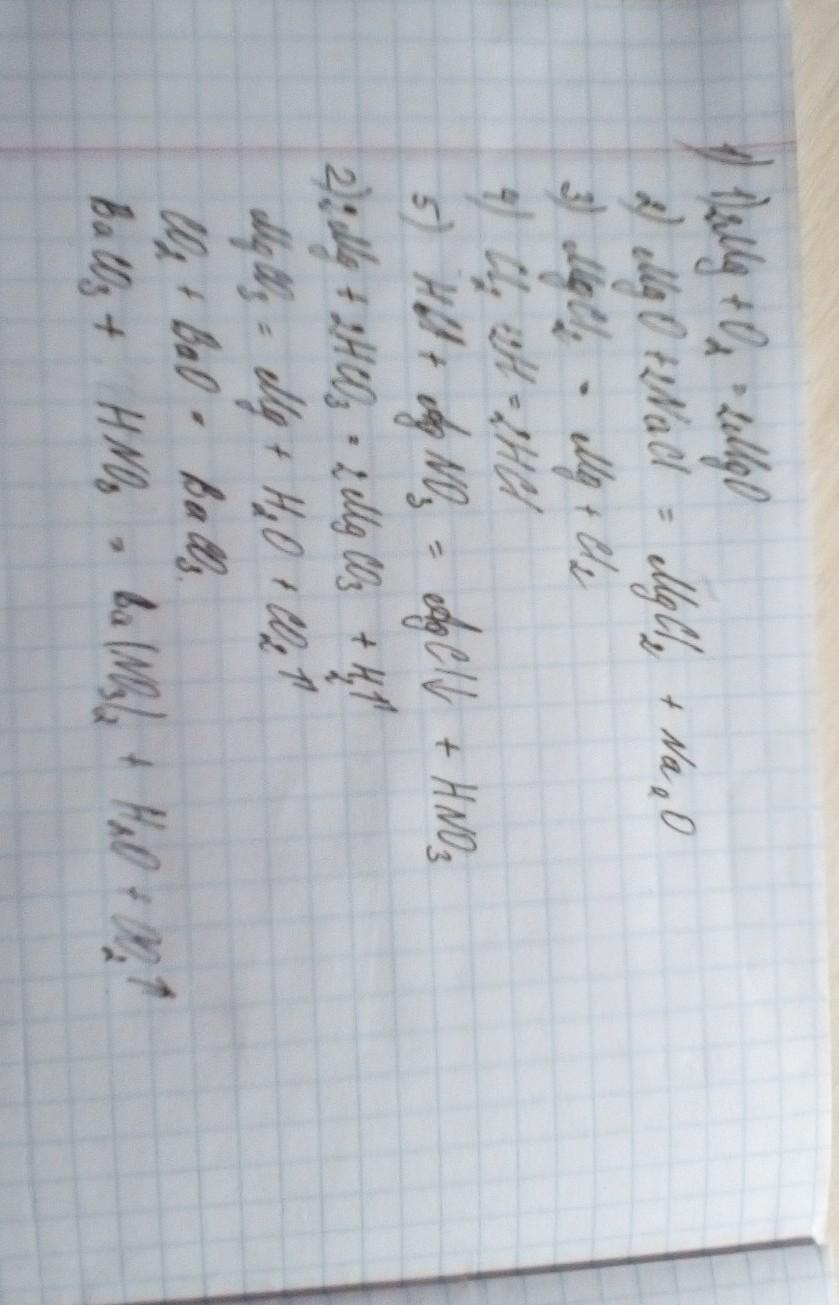 1) 1) 2Mg + O₂ = 2MgO
2) MgO + 2NaCl = MgCl₂ + Na₂O
3) MgCl₂ = Mg + Cl₂
4) Cl₂ + 2H = 2HCl
5) HCl + AgNO₃ = AgCl↓ + HNO₃
2) 2Mg + 2HCO₃ = 2MgCO₃ + H₂↑
MgCO₃ = Mg + H₂O + CO₂↑
CO₂ + BaO = BaCO₃
BaCO₃ + HNO₃ = Ba(NO₃)₂ + H₂O + CO₂↑